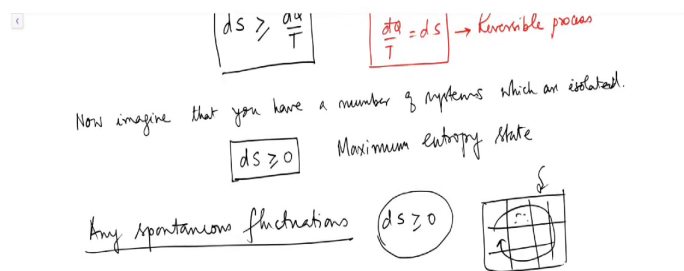 ds ≥ dQ/T    dQ/T = ds → Reversible process
Now imagine that you have a number of systems which are isolated.
ds ≥ 0    Maximum entropy state
Any spontaneous fluctuations    ds ≥ 0